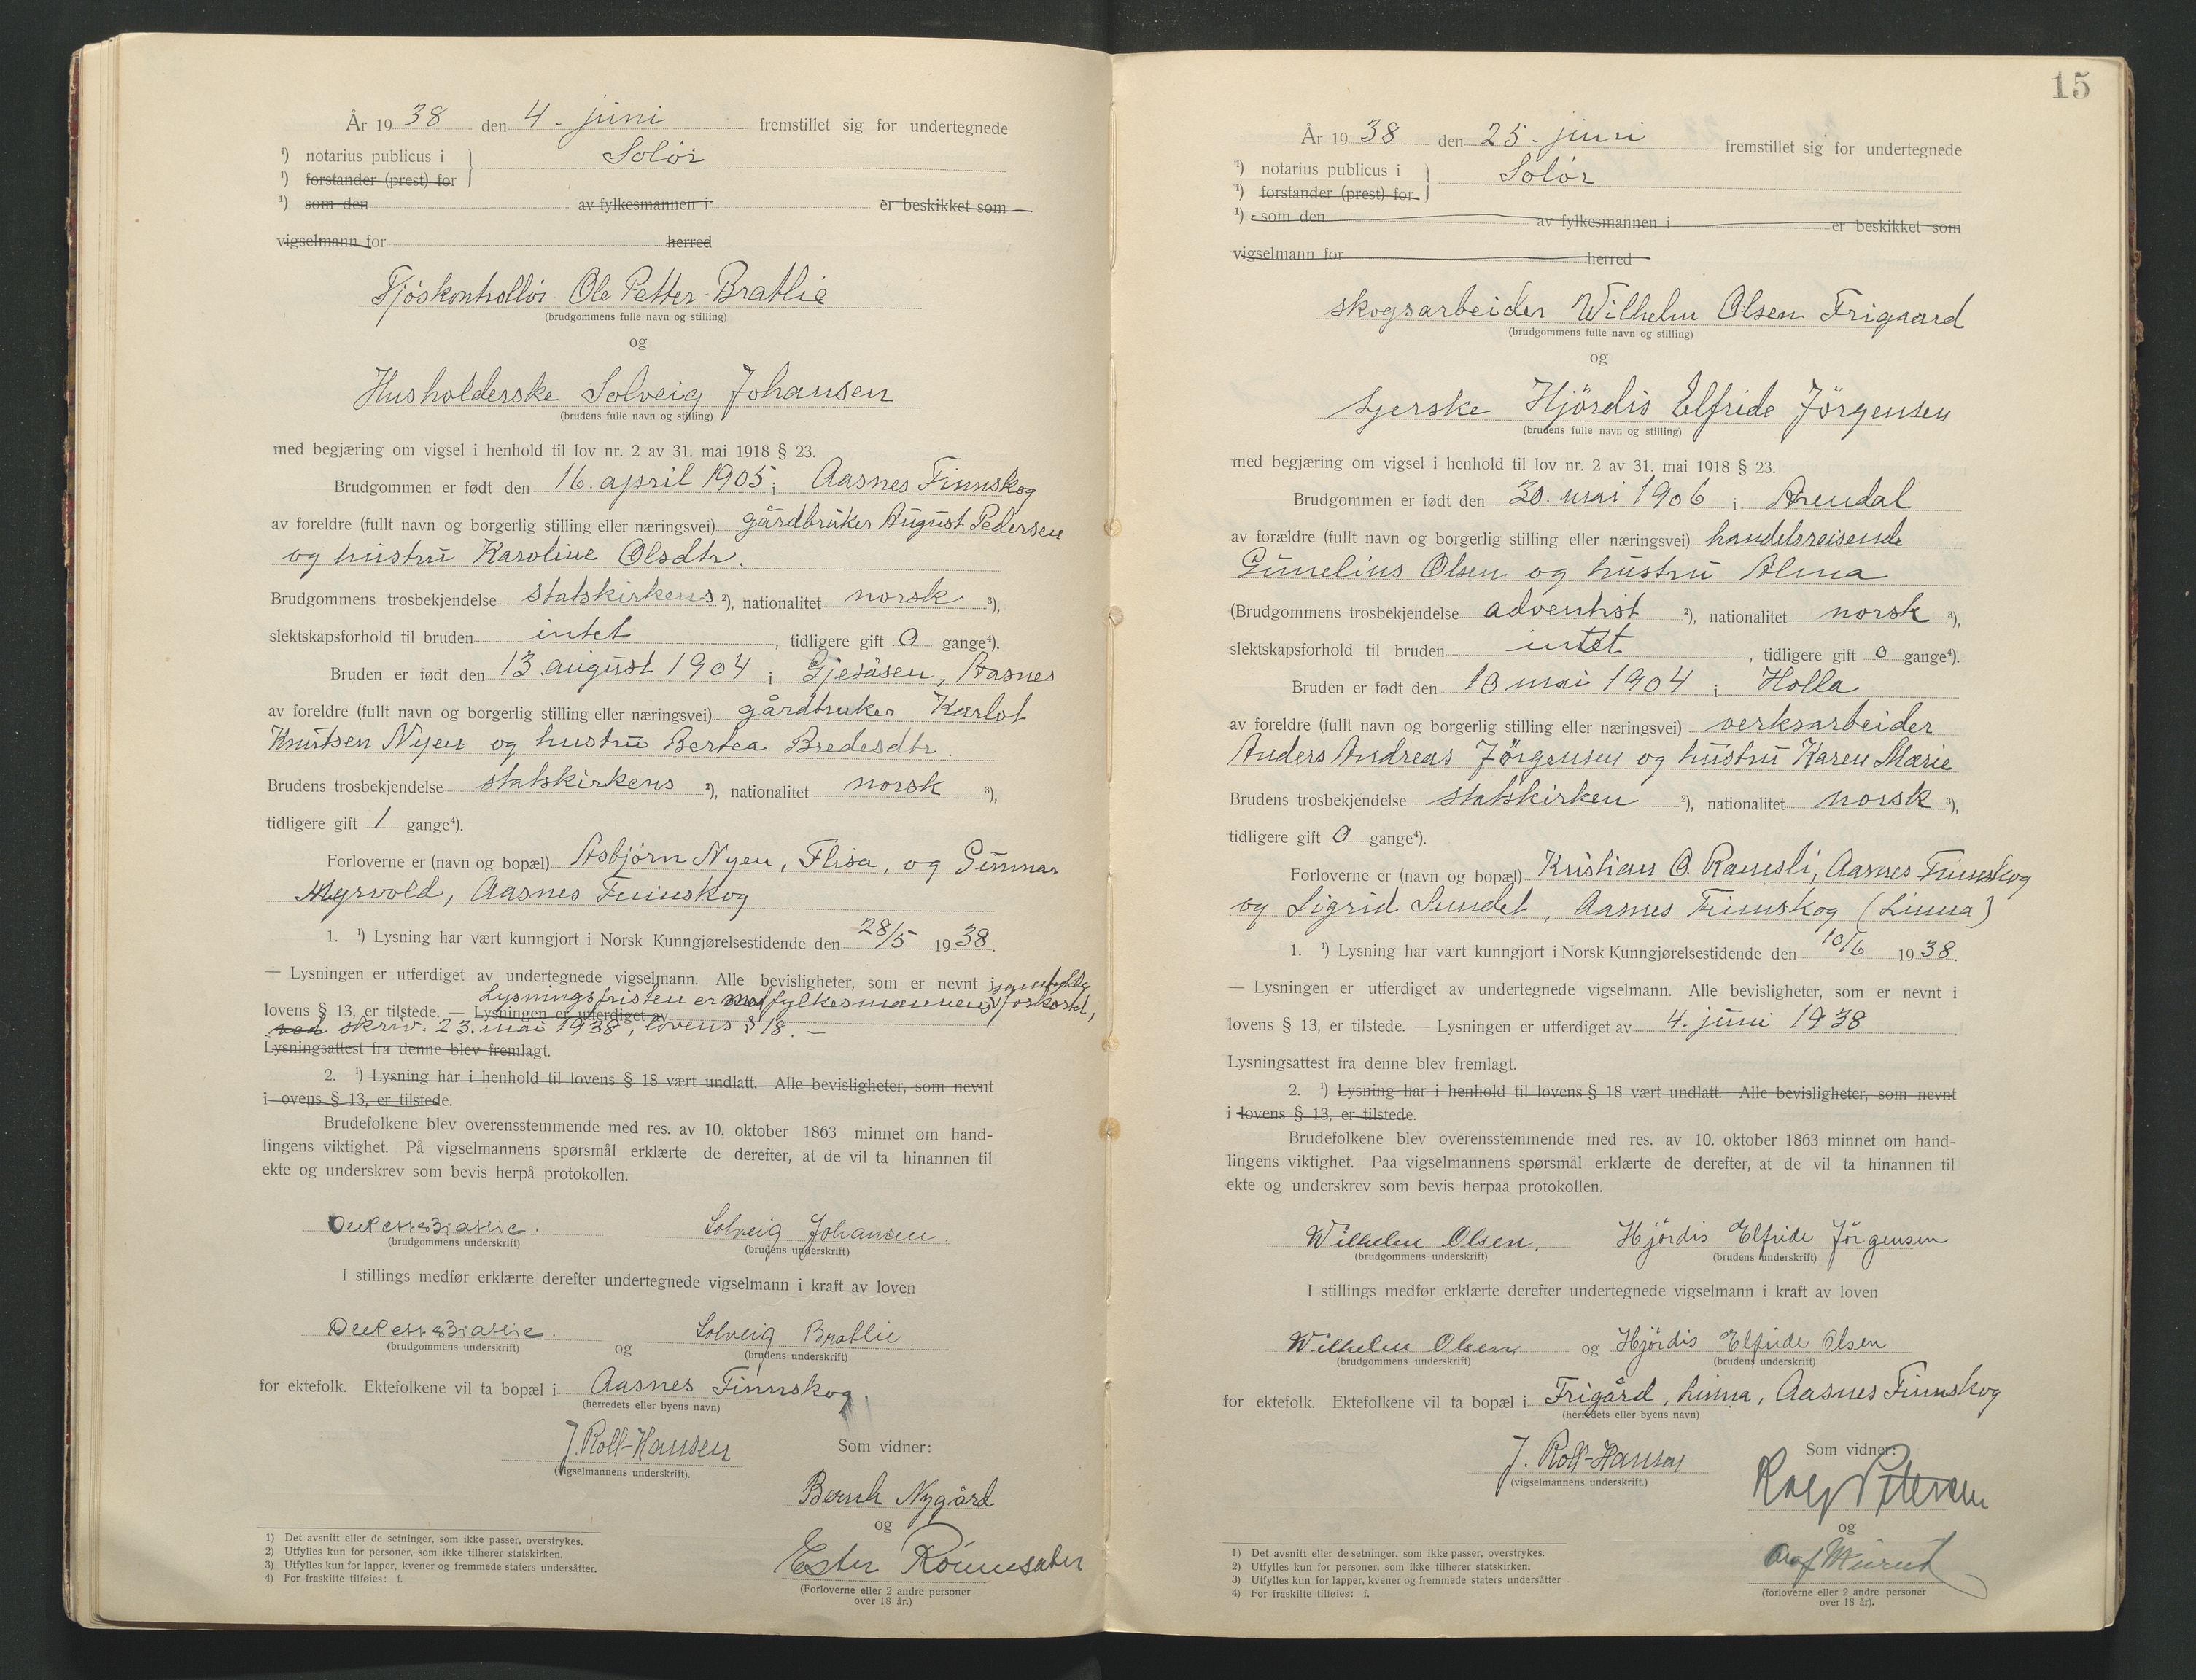 År 19 38 den 4. juni fremstillet sig for undertegnede
¹) notarius publicus i Solør
¹) forstander (prest) for
¹) som den av fylkesmannen i er beskikket som
vigselmann for herred
Fjøskontrollør Ole Petter Bratlie
(brudgommens fulle navn og stilling)
og
Husholderske Solveig Johansen
(brudens fulle navn og stilling)
med begjæring om vigsel i henhold til lov nr. 2 av 31. mai 1918 § 23.
Brudgommen er født den 16. april 1905 i Aasnes Finnskog
av foreldre (fullt navn og borgerlig stilling eller næringsvei) gårdbruker August Pedersen
og hustru Karoline Olsdtr.
Brudgommens trosbekjendelse statskirkens ²), nationalitet norsk ³),
slektskapsforhold til bruden intet, tidligere gift 0 gange⁴).
Bruden er født den 13. august 1904 i Gjesåsen, Aasnes
av foreldre (fullt navn og borgerlig stilling eller næringsvei) gårdbruker Karlot
Knutsen Nyen og hustru Bertea Bredesdtr.
Brudens trosbekjendelse statskirkens ²), nationalitet norsk ³),
tidligere gift 1 gange⁴).
Forloverne er (navn og bopæl) Asbjørn Nyen, Flisa, og Gunnar
Myrvold, Aasnes Finnskog
1. ¹) Lysning har vært kunngjort i Norsk Kunngjørelsestidende den 28/5 1938.
— Lysningen er utferdiget av undertegnede vigselmann. Alle bevisligheter, som er nevnt i
Lysningsfristen er med fylkesmannens samtykke forkortet,
lovens § 13, er tilstede. — Lysningen er utferdiget av
ved skriv. 23. mai 1938, lovens § 18. —
Lysningsattest fra denne blev fremlagt.
2. ¹) Lysning har i henhold til lovens § 18 vært undlatt. Alle bevisligheter, som nevnt
i ovens § 13, er tilstede.
Brudefolkene blev overensstemmende med res. av 10. oktober 1863 minnet om hand-
lingens viktighet. På vigselmannens spørsmål erklærte de derefter, at de vil ta hinannen til
ekte og underskrev som bevis herpå protokollen.
Ole Petter Bratlie. Solveig Johansen.
(brudgommens underskrift) (brudens underskrift)
I stillings medfør erklærte derefter undertegnede vigselmann i kraft av loven
Ole Petter Bratlie. og Solveig Bratlie.
(brudgommens underskrift) (brudens underskrift)
for ektefolk. Ektefolkene vil ta bopæl i Aasnes Finnskog
(herredets eller byens navn)
J. Roll-Hansen
(vigselmannens underskrift).
Som vidner:
Nygård
og
Ester
(Forloverne eller 2 andre personer
over 18 år.)
1) Det avsnitt eller de setninger, som ikke passer, overstrykes.
2) Utfylles kun for personer, som ikke tilhører statskirken.
3) Utfylles kun for lapper, kvener og fremmede staters undersåtter.
4) For fraskilte tilføies: f.
15
År 19 38 den 25. juni fremstillet sig for undertegnede
¹) notarius publicus i Solør
¹) forstander (prest) for
¹) som den av fylkesmannen i er beskikket som
vigselmann for herred
skogsarbeider Wilhelm Olsen Frigaard
(brudgommens fulle navn og stilling)
og
syerske Hjördis Elfride Jörgensen
(brudens fulle navn og stilling)
med begjæring om vigsel i henhold til lov nr. 2 av 31. mai 1918 § 23.
Brudgommen er født den 30. mai 1906 i Arendal
av forældre (fullt navn og borgerlig stilling eller næringsvei) handelsreisende
Gunelius Olsen og hustru Alma
(Brudgommens trosbekjendelse adventist ²), nationalitet norsk ³),
slektskapsforhold til bruden intet, tidligere gift 0 gange⁴).
Bruden er født den 10 mai 1904 i Holla
av foreldre (fullt navn og borgerlig stilling eller næringsvei) verksarbeider
Anders Andreas Jörgensen og hustru Karen Marie
Brudens trosbekjendelse statskirken ²), nationalitet norsk ³),
tidligere gift 0 gange⁴).
Forloverne er (navn og bopæl) Kristian O. Ramsli, Aasnes Finnskog
og Sigrid Sundet, Aasnes Finnskog (Linna)
1. ¹) Lysning har vært kunngjort i Norsk Kunngjørelsestidende den 10/6 1938.
— Lysningen er utferdiget av undertegnede vigselmann. Alle bevisligheter, som er nevnt i
lovens § 13, er tilstede. — Lysningen er utferdiget av 4. juni 1938
Lysningsattest fra denne blev fremlagt.
2. ¹) Lysning har i henhold til lovens § 18 vært undlatt. Alle bevisligheter, som nevnt
i lovens § 13, er tilstede.
Brudefolkene blev overensstemmende med res. av 10. oktober 1863 minnet om hand-
lingens viktighet. Paa vigselmannens spørsmål erklærte de derefter, at de vil ta hinannen til
ekte og underskrev som bevis herpaa protokollen.
Wilhelm Olsen. Hjördis Elfride Jörgensen
(brudgommens underskrift) (brudens underskrift)
I stillings medfør erklærte derefter undertegnede vigselmann i kraft av loven
Wilhelm Olsen og Hjördis Elfride Olsen
(brudgommens underskrift) (brudens underskrift)
for ektefolk. Ektefolkene vil ta bopæl i Frigård, Linna, Aasnes Finnskog
(herredets eller byens navn)
J. Roll-Hansen
(vigselmannens underskrift.)
Som vidner:
Rolf Petersen
og
Olaf
(forloverne eller 2 andre personer
over 18 år).
1) Det avsnitt eller de setninger, som ikke passer, overstrykes.
2) Utfylles kun for personer, som ikke tilhører statskirken.
3) Utfylles kun for lapper, kvener og fremmede staters undersåtter
4) For fraskilte tilføies: f.